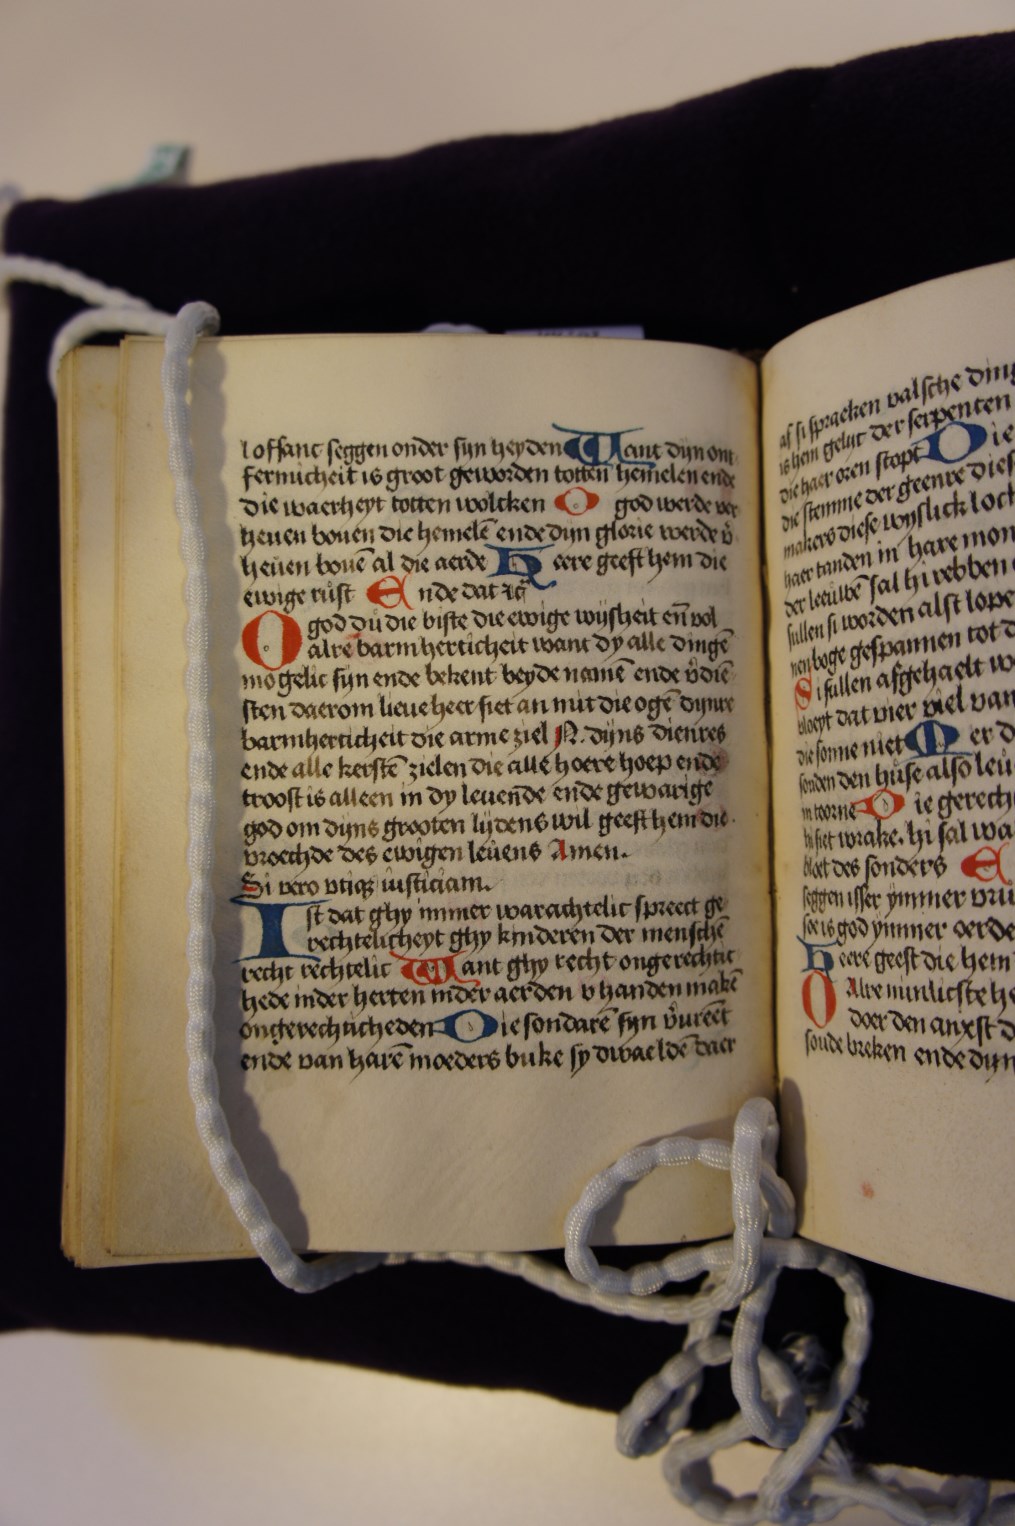 loffanc seggen onder sijn heyden Want dijn ont
fermicheit is groot geworden totten hemelen ende
die waerheyt totten wolcken O god werde ver
heuen bouen die hemelē ende dijn glorie werde v̄
heuen bouē al die aerde Heere geeft hem die
ewige rust Ende dat
O god du die biste die ewige wijsheit en̄ vol
alre barmherticheit want dy alle dingē
mogelic sijn ende bekent beyde namē ende v̄diē
sten daerom lieue heer siet an mit die ogē dijnre
barmherticheit die arme ziel N. dijns dienres
ende alle kerstē zielen die alle hoere hoep ende
troost is alleen in dy leuende ende gewarige
god om dijns grooten lijdens wil geeft hem die
vroechde des ewigen leuens Amen.
Si vero vtiqꝫ iusticiam.
Ist dat ghy immer warachtelic spreect ge
rechtelicheyt ghy kinderen der menschē
recht rechtelic Want ghy recht ongerechtic
hede inder herten inder aerden v handen makē
ongerechticheden Die sondarē sijn v̄ureēt
ende van harē moeders buke sy dwaeldē daer
as si spraeken valsche ding
is hem gelijc der serpenten
die haer oren stopt Die
die stemme der geenre dies
makers diese wyslick
haer tanden in hare mon
der leeuwē sal hi
sullen si worden alst lope
boge gespannen tot d
Si sullen afgehaelt w
bloeyt dat vier viel van
die sonne niet er d
sonden den huse also leu
in toorne Die gerech
hi siet wrake. hi sal wa
bloet des sonders E
seggen isser ymmer vru
soe is god ymmer oerde
Heere geeft die hem
O Alre minlicste he
doer den anxst d
soude breken ende dijn